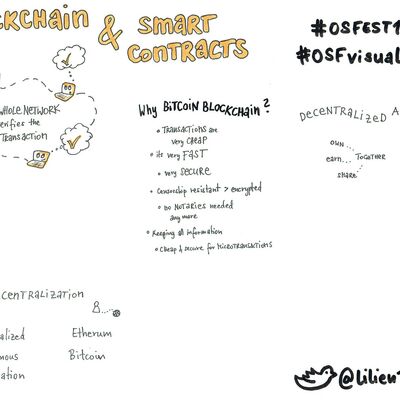 CKCHAIN & SMART
CONTRACTS
#OSFEST1
#OSFvisual
WHOLE NETWORK
verifies the
TRANSACTION
Why BiTCOIN BLOCKCHAIN?
TRANSACTIONS are
very CHEAP
its very FAST
very SECURE
Censorship resistant > encrypted
NO NOTARIES needed
any more
Keeping all information
Cheap & secure for MICROTRANSACTIONS
DECENTRALIZED A
OWN ...
earn ... TOGETHER
share
CENTRALIZATION
alized
Etherum
mous
Bitcoin
ation
@lilien